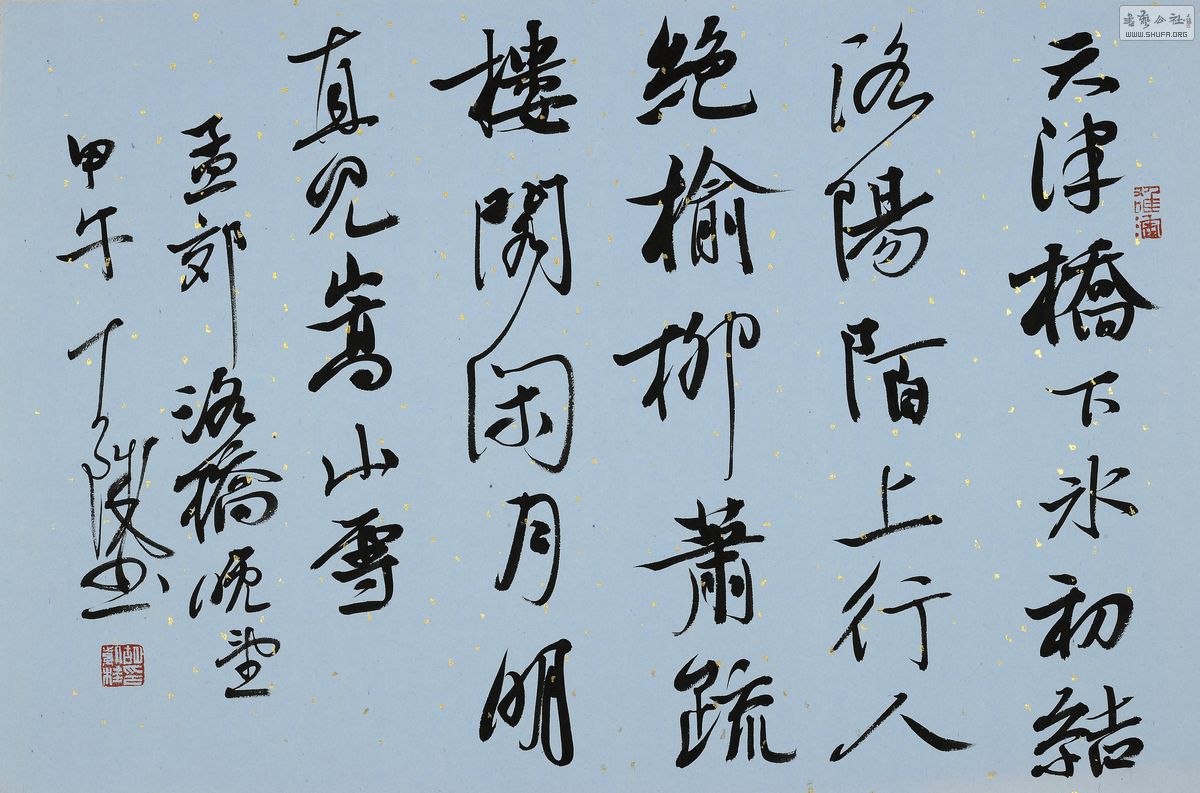 天津橋下氷初結
洛陽陌上行人
絕榆柳蕭疏
樓閣閑月明
直見嵩山雪
孟郊洛橋晚望
甲午
書藝公社
WWW.SHUFA.ORG